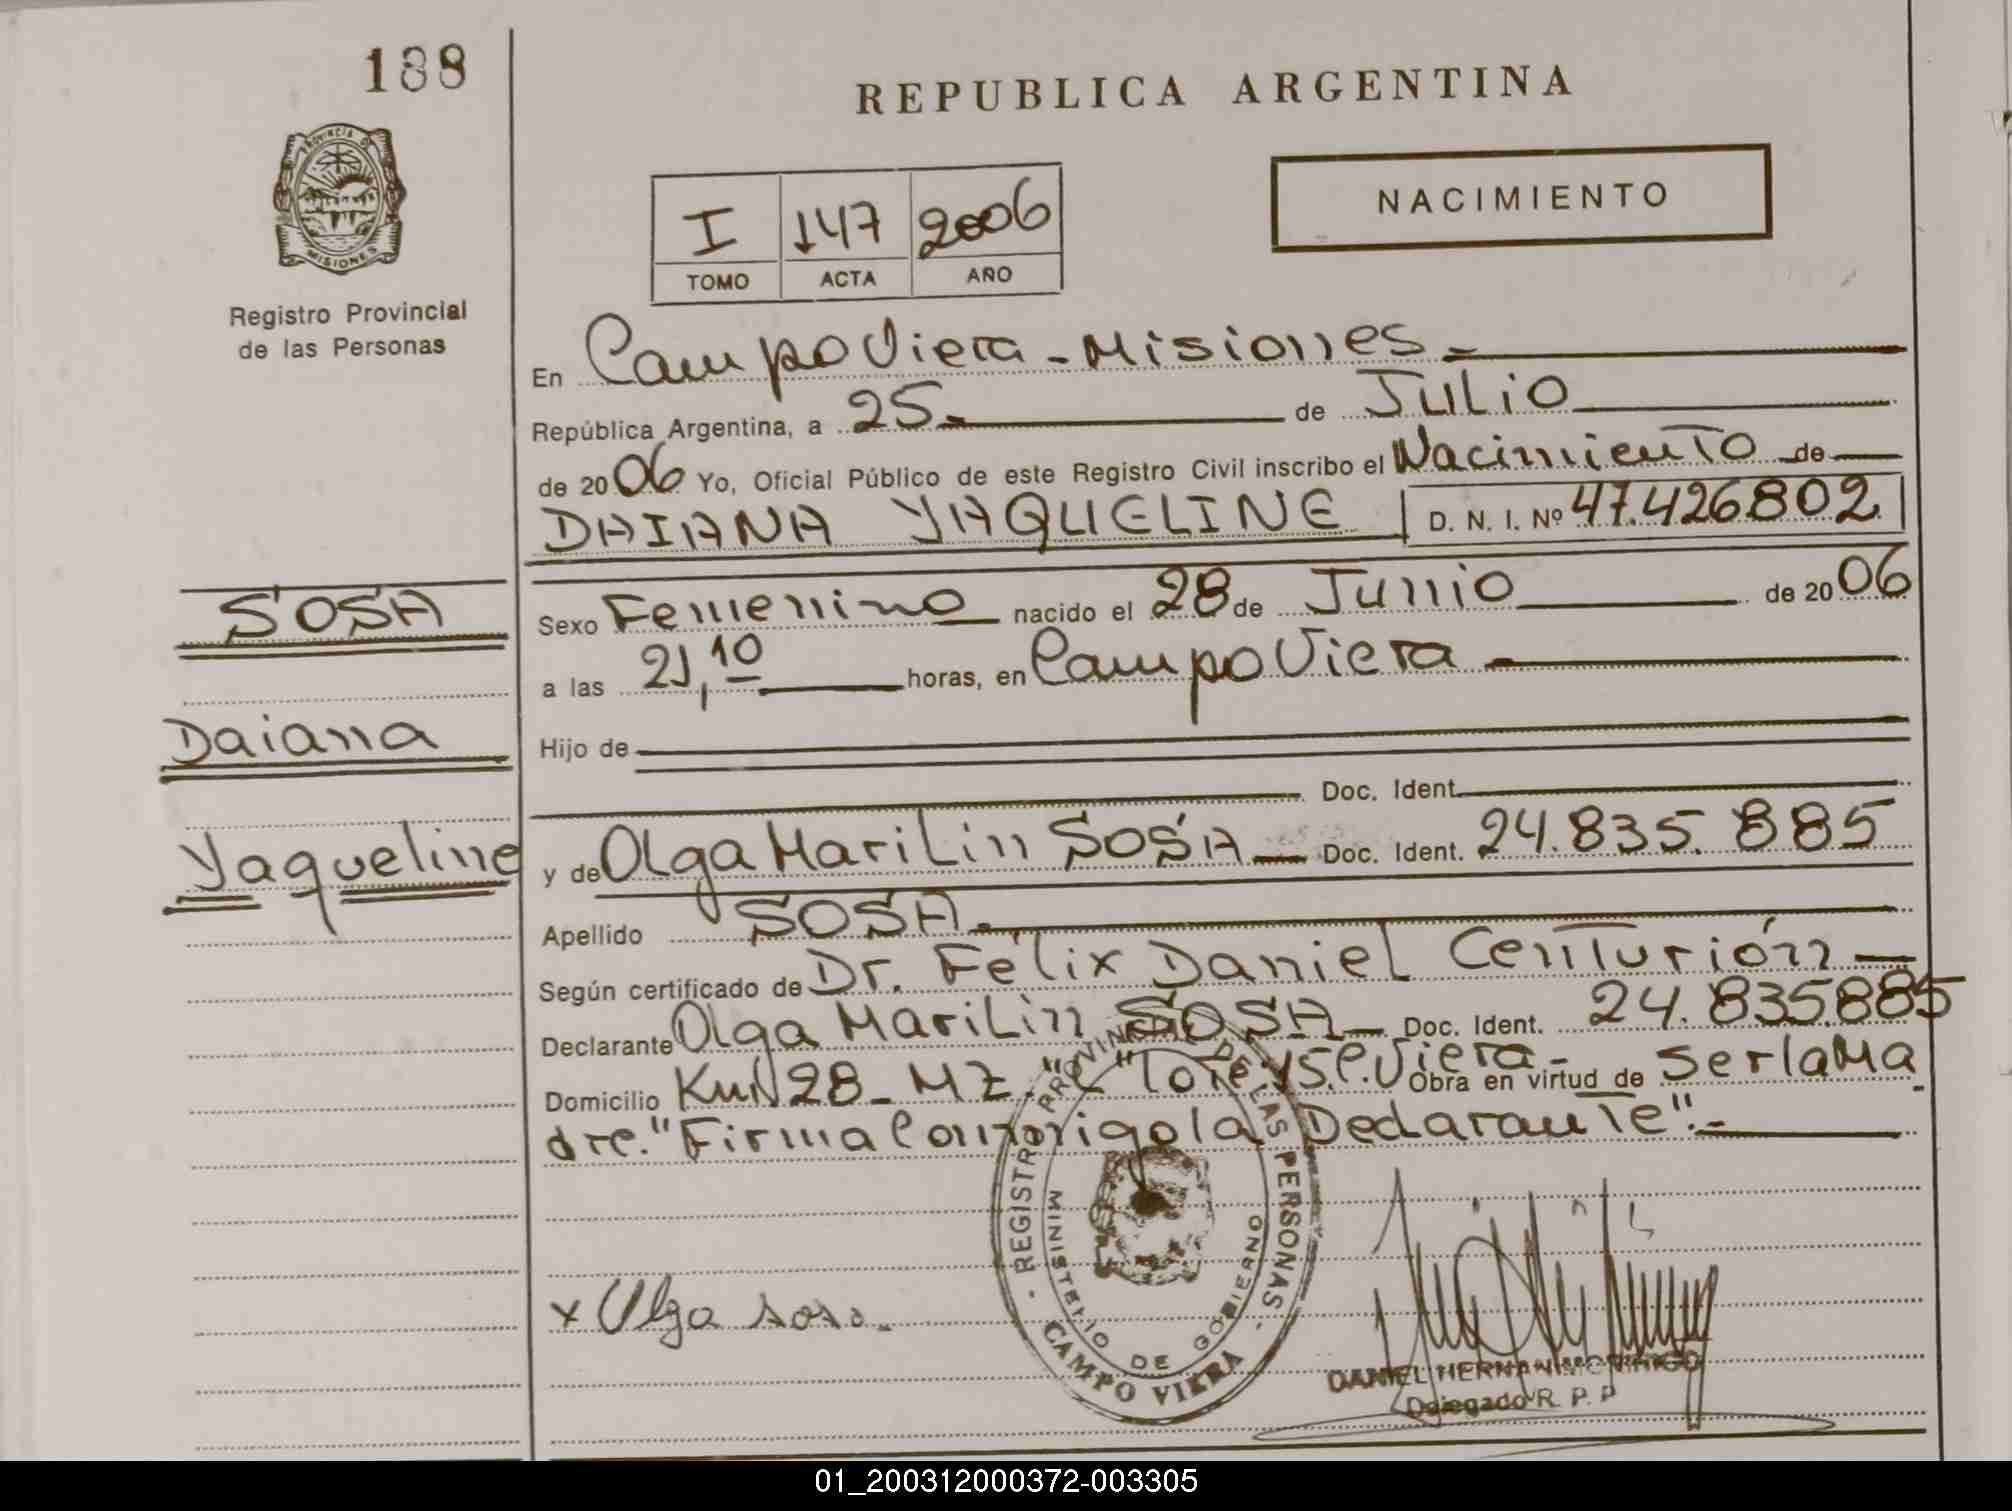 188
REPUBLICA ARGENTINA
PROVINCIA DE
MISIONES
Registro Provincial
de las Personas
I 147 2006
TOMO ACTA AÑO
NACIMIENTO
En Campo Viera - Misiones.-
República Argentina, a 25.- de Julio
de 2006 Yo, Oficial Público de este Registro Civil inscribo el Nacimiento de
DAIANA YAQUELINE D. N. I. Nº 47.426802
SOSA
Daiana
Yaqueline
Sexo Femenino nacido el 28 de Junio de 2006
a las 21,10 horas, en Campo Viera
Hijo de
Doc. Ident.
y de Olga Marilin SOSA Doc. Ident. 24.835.885
Apellido SOSA.
Según certificado de Dr. Félix Daniel Centurión
Declarante Olga Marilin SOSA Doc. Ident. 24.835.885
Domicilio Km 28 - MZ "C" Lote 15 C. Viera - Obra en virtud de Ser la Ma
dre. "Firma Conmigo la Declarante".-
x Olga sosa.
REGISTRO PROVINCIAL DE LAS PERSONAS
MINISTERIO DE GOBIERNO
CAMPO VIERA
DANIEL HERNAN
Delegado R. P. P
01_200312000372-003305